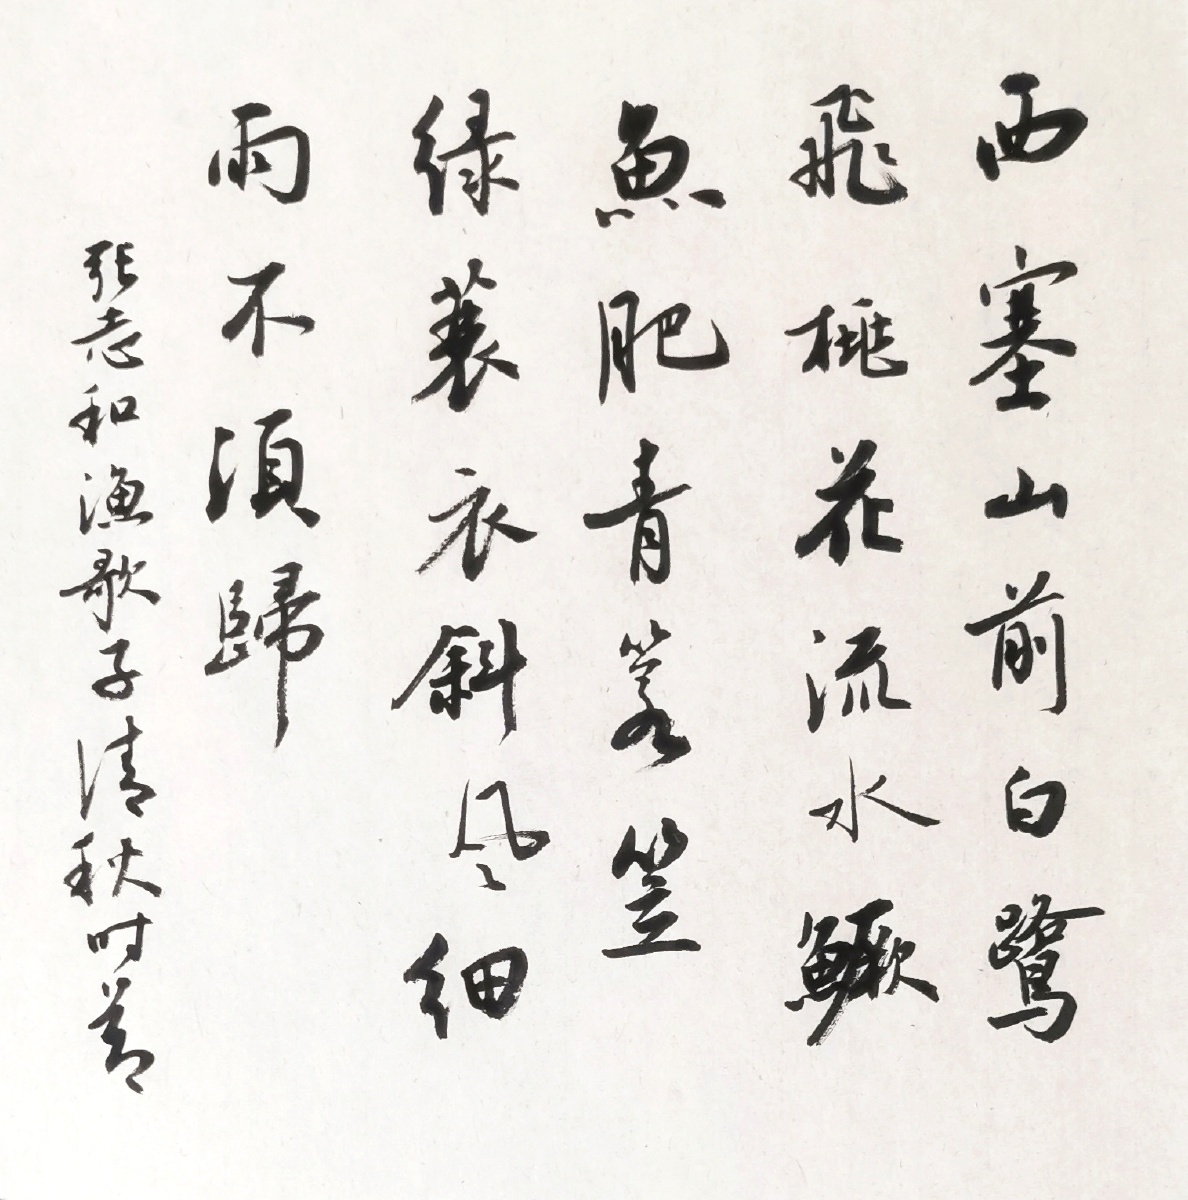 西塞山前白鷺
飛桃花流水鱖
魚肥青箬笠
绿蓑衣斜风细
雨不須歸
张志和漁歌子清秋时节